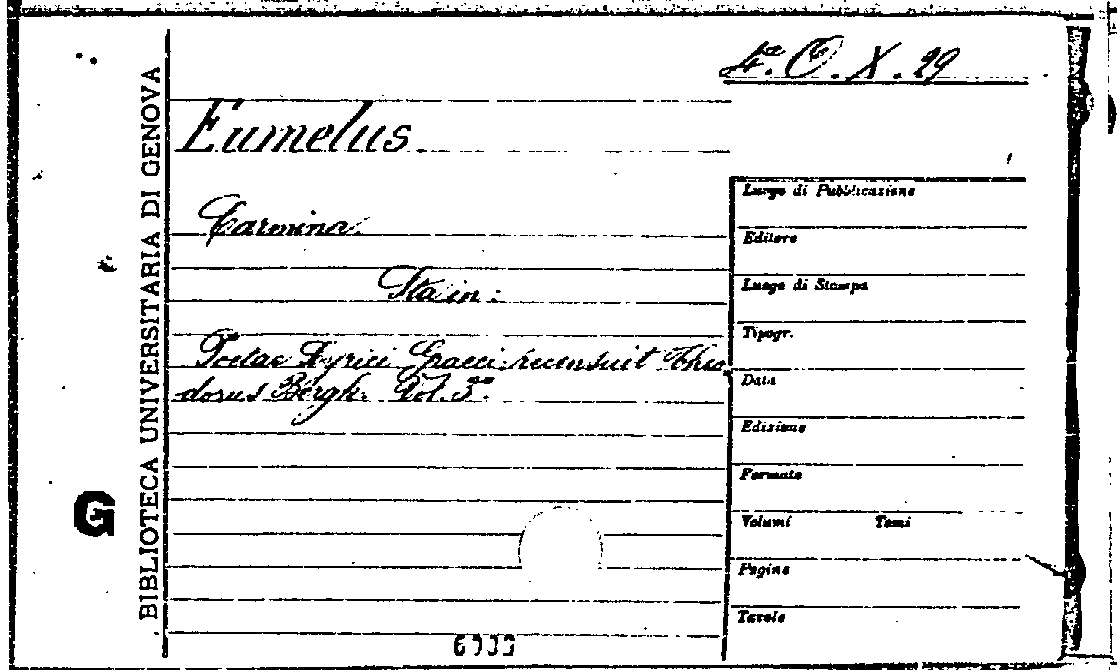 4ª. O. X. 29
BIBLIOTECA UNIVERSITARIA DI GENOVA
G
Eumelus.
Carmina.
Sta in:
Poetae Lyrici Graeci recensuit Theo
dorus Bergk. Vol. 3º.
Luogo di Pubblicazione
Editore
Luogo di Stampa
Tipogr.
Data
Edizione
Formato
Volumi Tomi
Pagine
Tavole